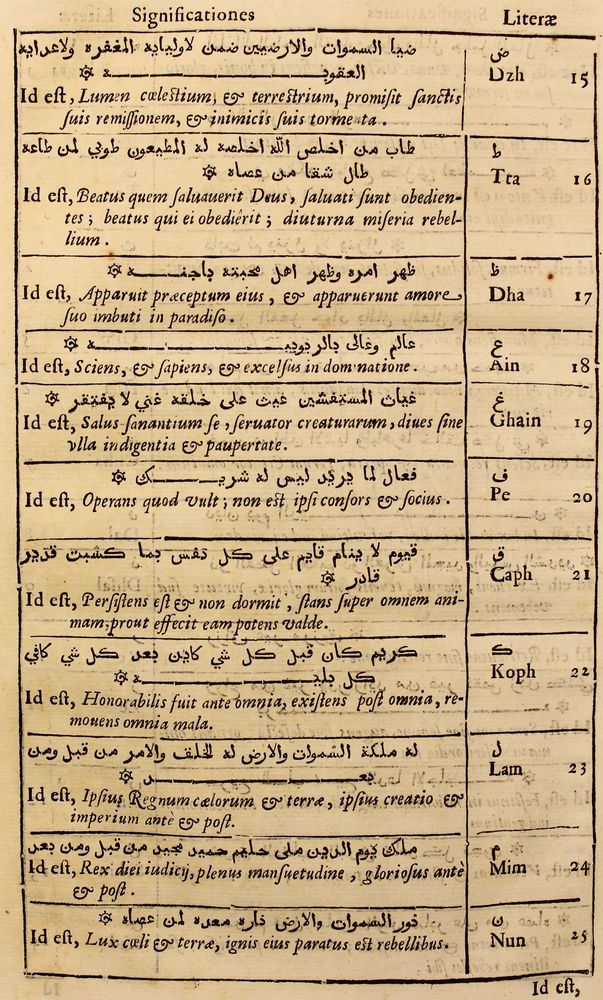 Significationes
Literæ
ضيا السموات والارضيين ضمن لاوليايه المغفره ولاعدايه
العقوبـــه ۞
Id est, Lumen cœlestium, & terrestrium, promisit sanctis
suis remissionem, & inimicis suis tormenta.
ض
Dzh
15
طاب من اخلص الله اخلصة له المطيعون طوبي لمن طاعه
طال شقا من عصاه ۞
Id est, Beatus quem saluauerit Deus, saluati sunt obedien-
tes; beatus qui ei obediérit; diuturna miseria rebel-
lium.
ط
Tta
16
ظهر امره وظهر اهل محبته باجنـــه ۞
Id est, Apparuit præceptum eius, & apparuerunt amore
suo imbuti in paradiso.
ظ
Dha
17
عالم وعالى
Id est, Sciens, & sapiens, & excelsus in dominatione.
ع
Ain
18
غياث المستغشين غيث على خلقه غني لا يفتقر ۞
Id est, Salus sanantium se, seruator creaturarum, diues sine
vlla indigentia & paupertate.
غ
Ghain
19
فعال لما يريد ليس له شريـــك ۞
Id est, Operans quod vult; non est ipsi consors & socius.
ف
Pe
20
قيوم لا ينام قايم على كل نفس بما كسبت قدير
قادر ۞
Id est, Persistens est & non dormit, stans super omnem ani-
mam, prout effecit eam potens valde.
ق
Caph
21
كريم كان قبل كل شي كاين بعد كل شي كافي
كل بليـــه ۞
Id est, Honorabilis fuit ante omnia, existens post omnia, re-
mouens omnia mala.
ك
Koph
22
له ملكة السموات والارض له الخلف والامر من قبل ومن
بعـــد ۞
Id est, Ipsius Regnum cælorum & terræ, ipsius creatio &
imperium antè & post.
ل
Lam
23
ملك يوم الدين ملى حليم حميد مجيد من قبل ومن بعد
Id est, Rex diei iudicij, plenus mansuetudine, gloriosus antè
& post.
م
Mim
24
نور السموات والارض ناره معده لمن عصاه ۞
Id est, Lux cœli & terræ, ignis eius paratus est rebellibus.
ن
Nun
25
Id est,